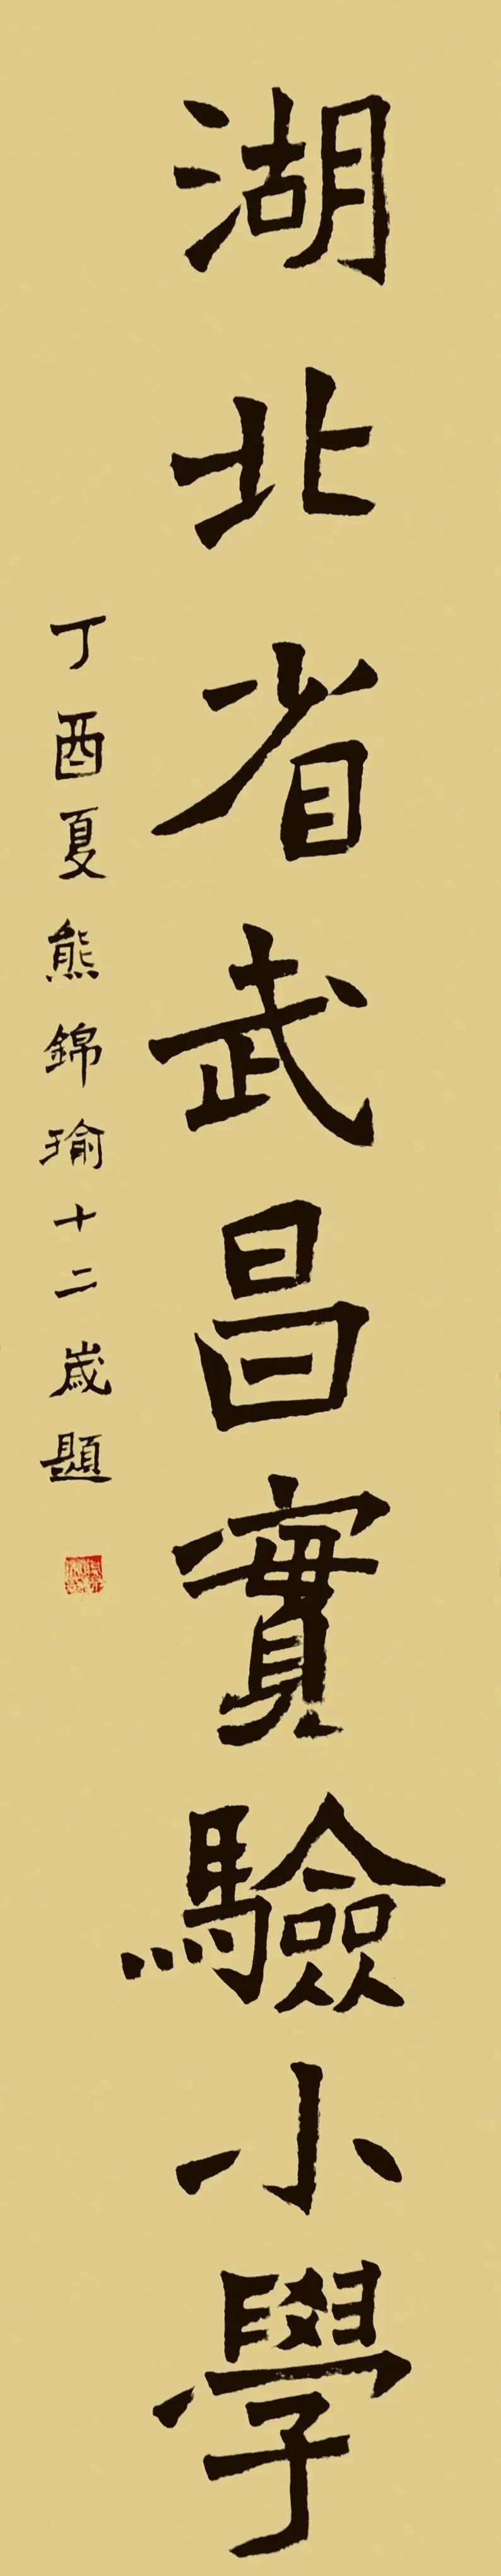 湖北省武昌實驗小學
丁酉夏熊錦瑜十二歲題